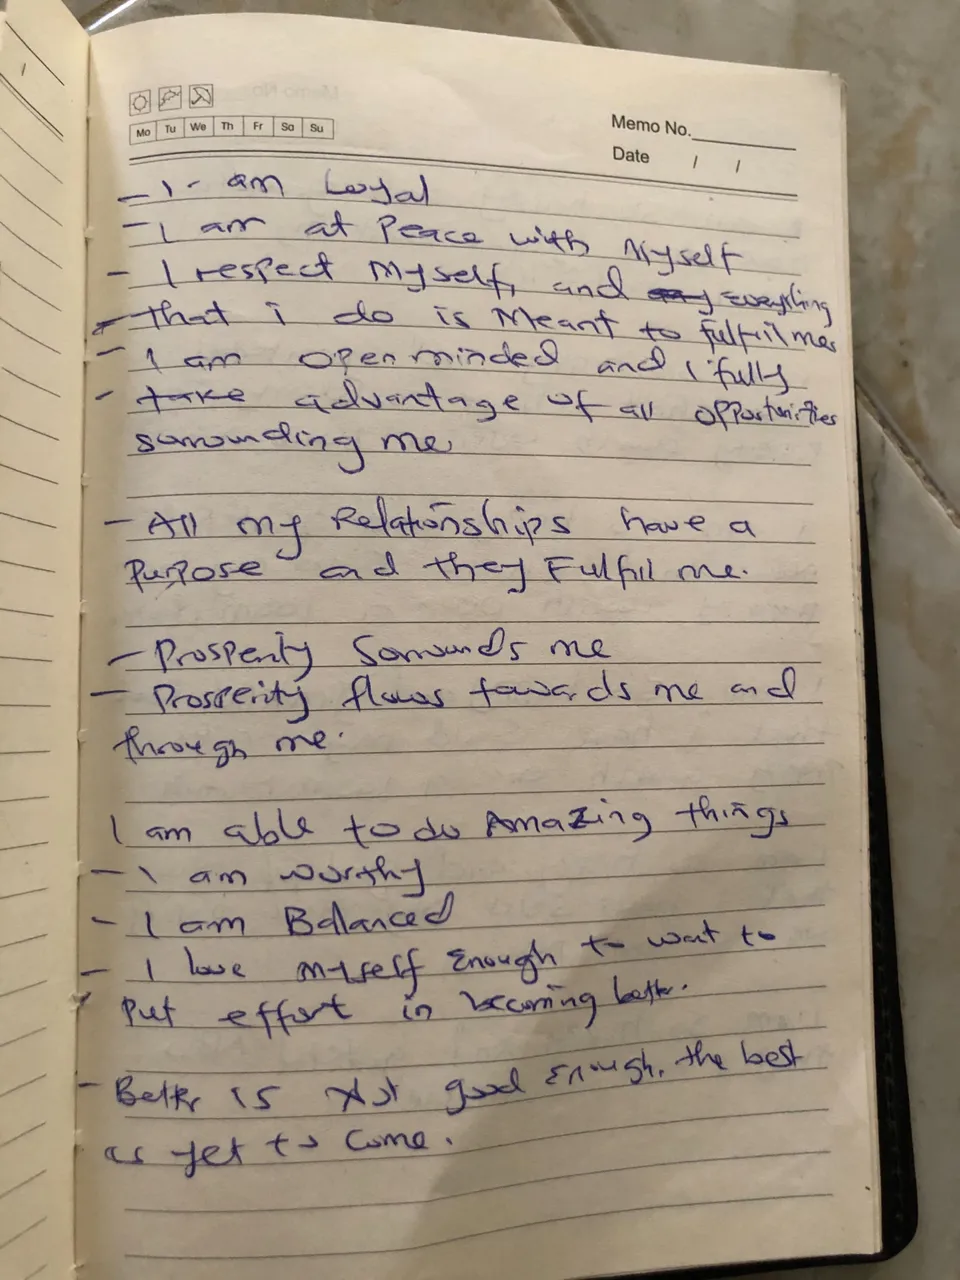 Memo No.
Mo Tu We Th Fr Sa Su
Date / /
- I am Loyal
- I am at Peace with Myself
- I respect Myself, and everything
- that i do is Meant to fulfil me
- I am open minded and I fully
- take advantage of all opportunities
sorrounding me
- All my Relationships have a
Purpose and they Fulfil me.
- Prosperity Sorrounds me
- Prosperity flows towards me and
through me.
I am able to do Amazing things
- I am worthy
- I am Balanced
- I love myself Enough to want to
Put effort in becoming better.
- Better is Not good Enough, the best
is yet to come.